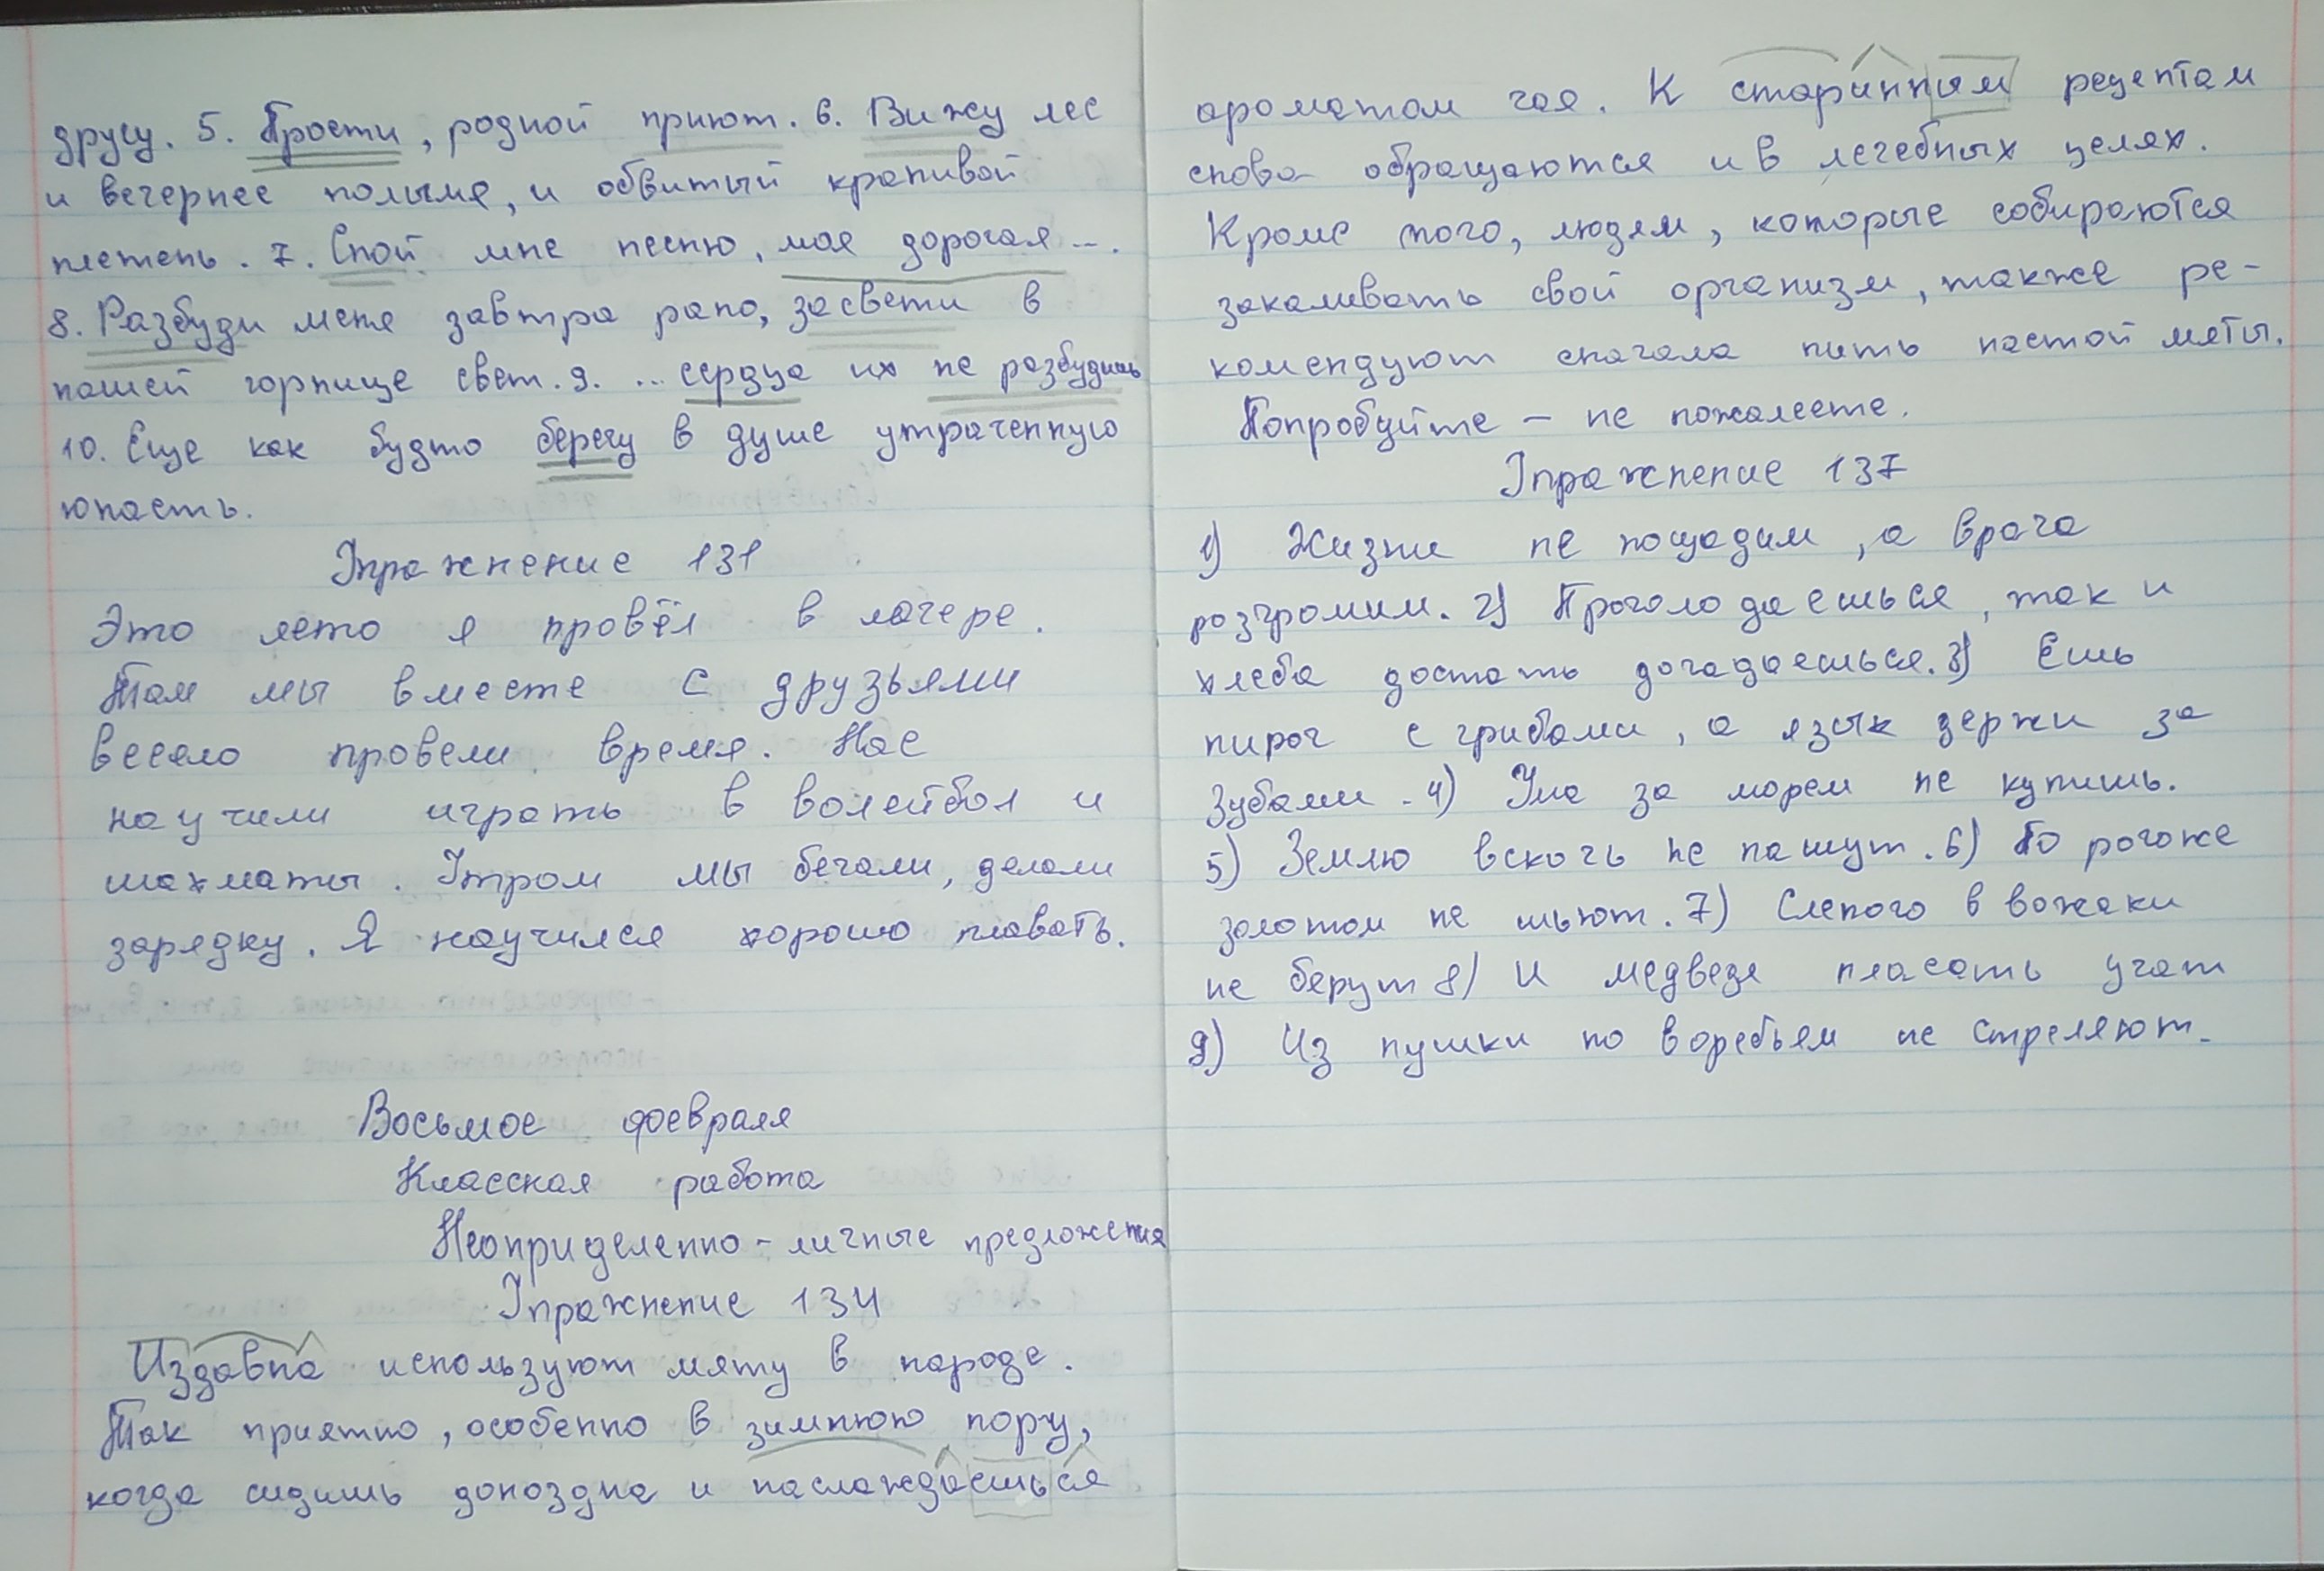 другу. 5. Прости, родной приют. 6. Вижу лес
и вечернее полымя, и обвитый крапивой
плетень. 7. Спой мне песню, моя дорогая ...
8. Разбуди меня завтра рано, засвети в
нашей горнице свет. 9. ...сердца их не разбудишь
10. Еще как будто берегу в душе утраченную
юность.
Упражнение 131
Это лето я провёл в лагере.
Там мы вместе с друзьями
весело провели время. Нас
научили играть в волейбол и
шахматы. Утром мы бегали, делали
зарядку. Я научился хорошо плавать.
Восьмое февраля
Классная работа
Неоприделенно-личные предложения
Упражнение 134
Издавна используют мяту в народе.
Так приятно, особенно в зимнюю пору,
когда сидишь допоздна и наслаждаешься
ароматом чая. К старинным рецептам
снова обращаются и в лечебных целях.
Кроме того, людям, которые собираются
закаливать свой организм, также ре-
комендуют сначала пить настой мяты.
Попробуйте - не пожалеете.
Упражнение 137
1) Жизни не пощадим, а врага
розгромим. 2) Проголодаешься, так и
хлеба достать догадаешься. 3) Ешь
пирог с грибами, а язык держи за
зубами. 4) Ума за морем не купишь.
5) Землю вскочь не пашут. 6) По рогоже
золотом не шьют. 7) Слепого в вожаки
не берут 8) И медведя плясать учат
9) Из пушки по воребьям не стреляют.